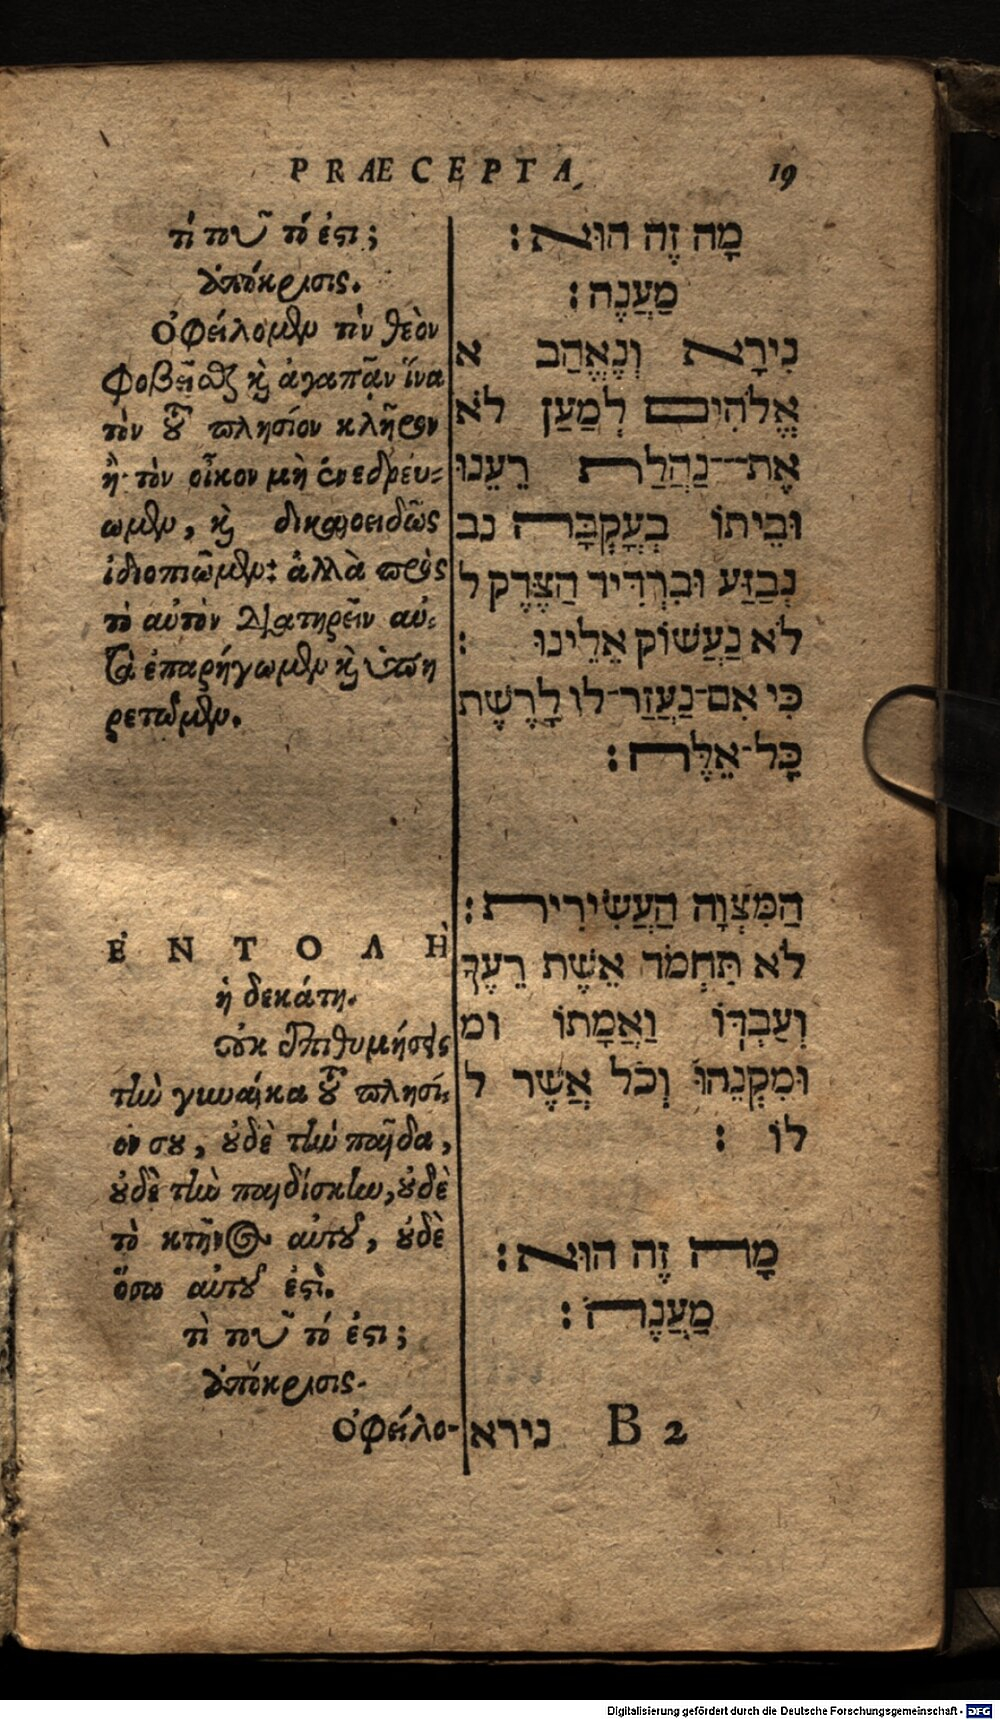 PRÆCEPTA 19
τί ποῦ τό ἐστι;
ἀπόκρισις.
Ὀφείλομεν τὸν θεὸν
φοβεῖσθαι καὶ ἀγαπᾶν ἵνα
τὸν τοῦ πλησίον κλῆρον
ἢ τὸν οἶκον μὴ ἐνεδρεύ-
ωμεν, καὶ δικαιοειδῶς
ἰδιοποιῶμεν: ἀλλὰ πρὸς
τὸ αὐτὸν διατηρεῖν αὐ-
τὰ ἐπαρήγωμεν καὶ ὑπη
ρετῶμεν.
ΕΝΤΟΛΗ
ἡ δεκάτη.
οὐκ ἐπιθυμήσεις
τὴν γυναῖκα τοῦ πλησί-
ον σου, οὐδὲ τὸν παῖδα,
οὐδὲ τὴν παιδίσκην, οὐδὲ
τὸ κτῆνος αὐτοῦ, οὐδὲ
ὅσα αὐτοῦ ἐστί.
τὶ ποῦ τό ἐστι;
ἀπόκρισις.
Ὀφείλο-
מָה זֶה הוּא׃
מַעֲנֶה׃
נִירָא וְנֶאֱהַב א
אֱלֹהִים לְמַעַן לֹא
אֶת־נַהֲלַת רֵעֵנוּ
וּבֵיתוֹ בְעָקְבָּה נב
נְבַזַּע וּבִרְדִיד הַצֶּדֶק ל
לֹא נַעֲשׁוֹק אֵלֵינוּ ׃
כִּי אִם־נַעֲזַר־לו לָרֶשֶׁת
כָּל־אֵלֶּה׃
הַמִּצְוָה הַעֲשִׂירִית׃
לֹא תַּחְמֹד אֵשֶׁת רֵעֶךָ
וְעַבְדּוֹ וַאֲמָתוֹ ומ
וּמִקְנֵהוּ וְכֹל אֲשֶׁר ל
לוֹ ׃
מָה זֶה הוּא׃
מַעֲנֶה׃
נירא B 2
Digitalisierung gefördert durch die Deutsche Forschungsgemeinschaft - DFG